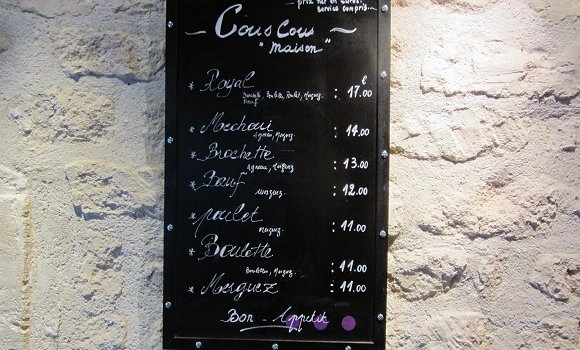 prix net en euros.
service compris.
~ Cous Cous ~
"maison"
€
* Royal : 17.00
Brochette, Boulette, Poulet, Merguez.
Bœuf
* Mechoui : 14.00
Agneau, Merguez.
* Brochette : 13.00
Agneau, Merguez
* Bœuf : 12.00
Merguez.
* poulet : 11.00
Merguez.
* Boulette
Boulettes, Merguez. : 11.00
* Merguez : 11.00
Bon - Appetit